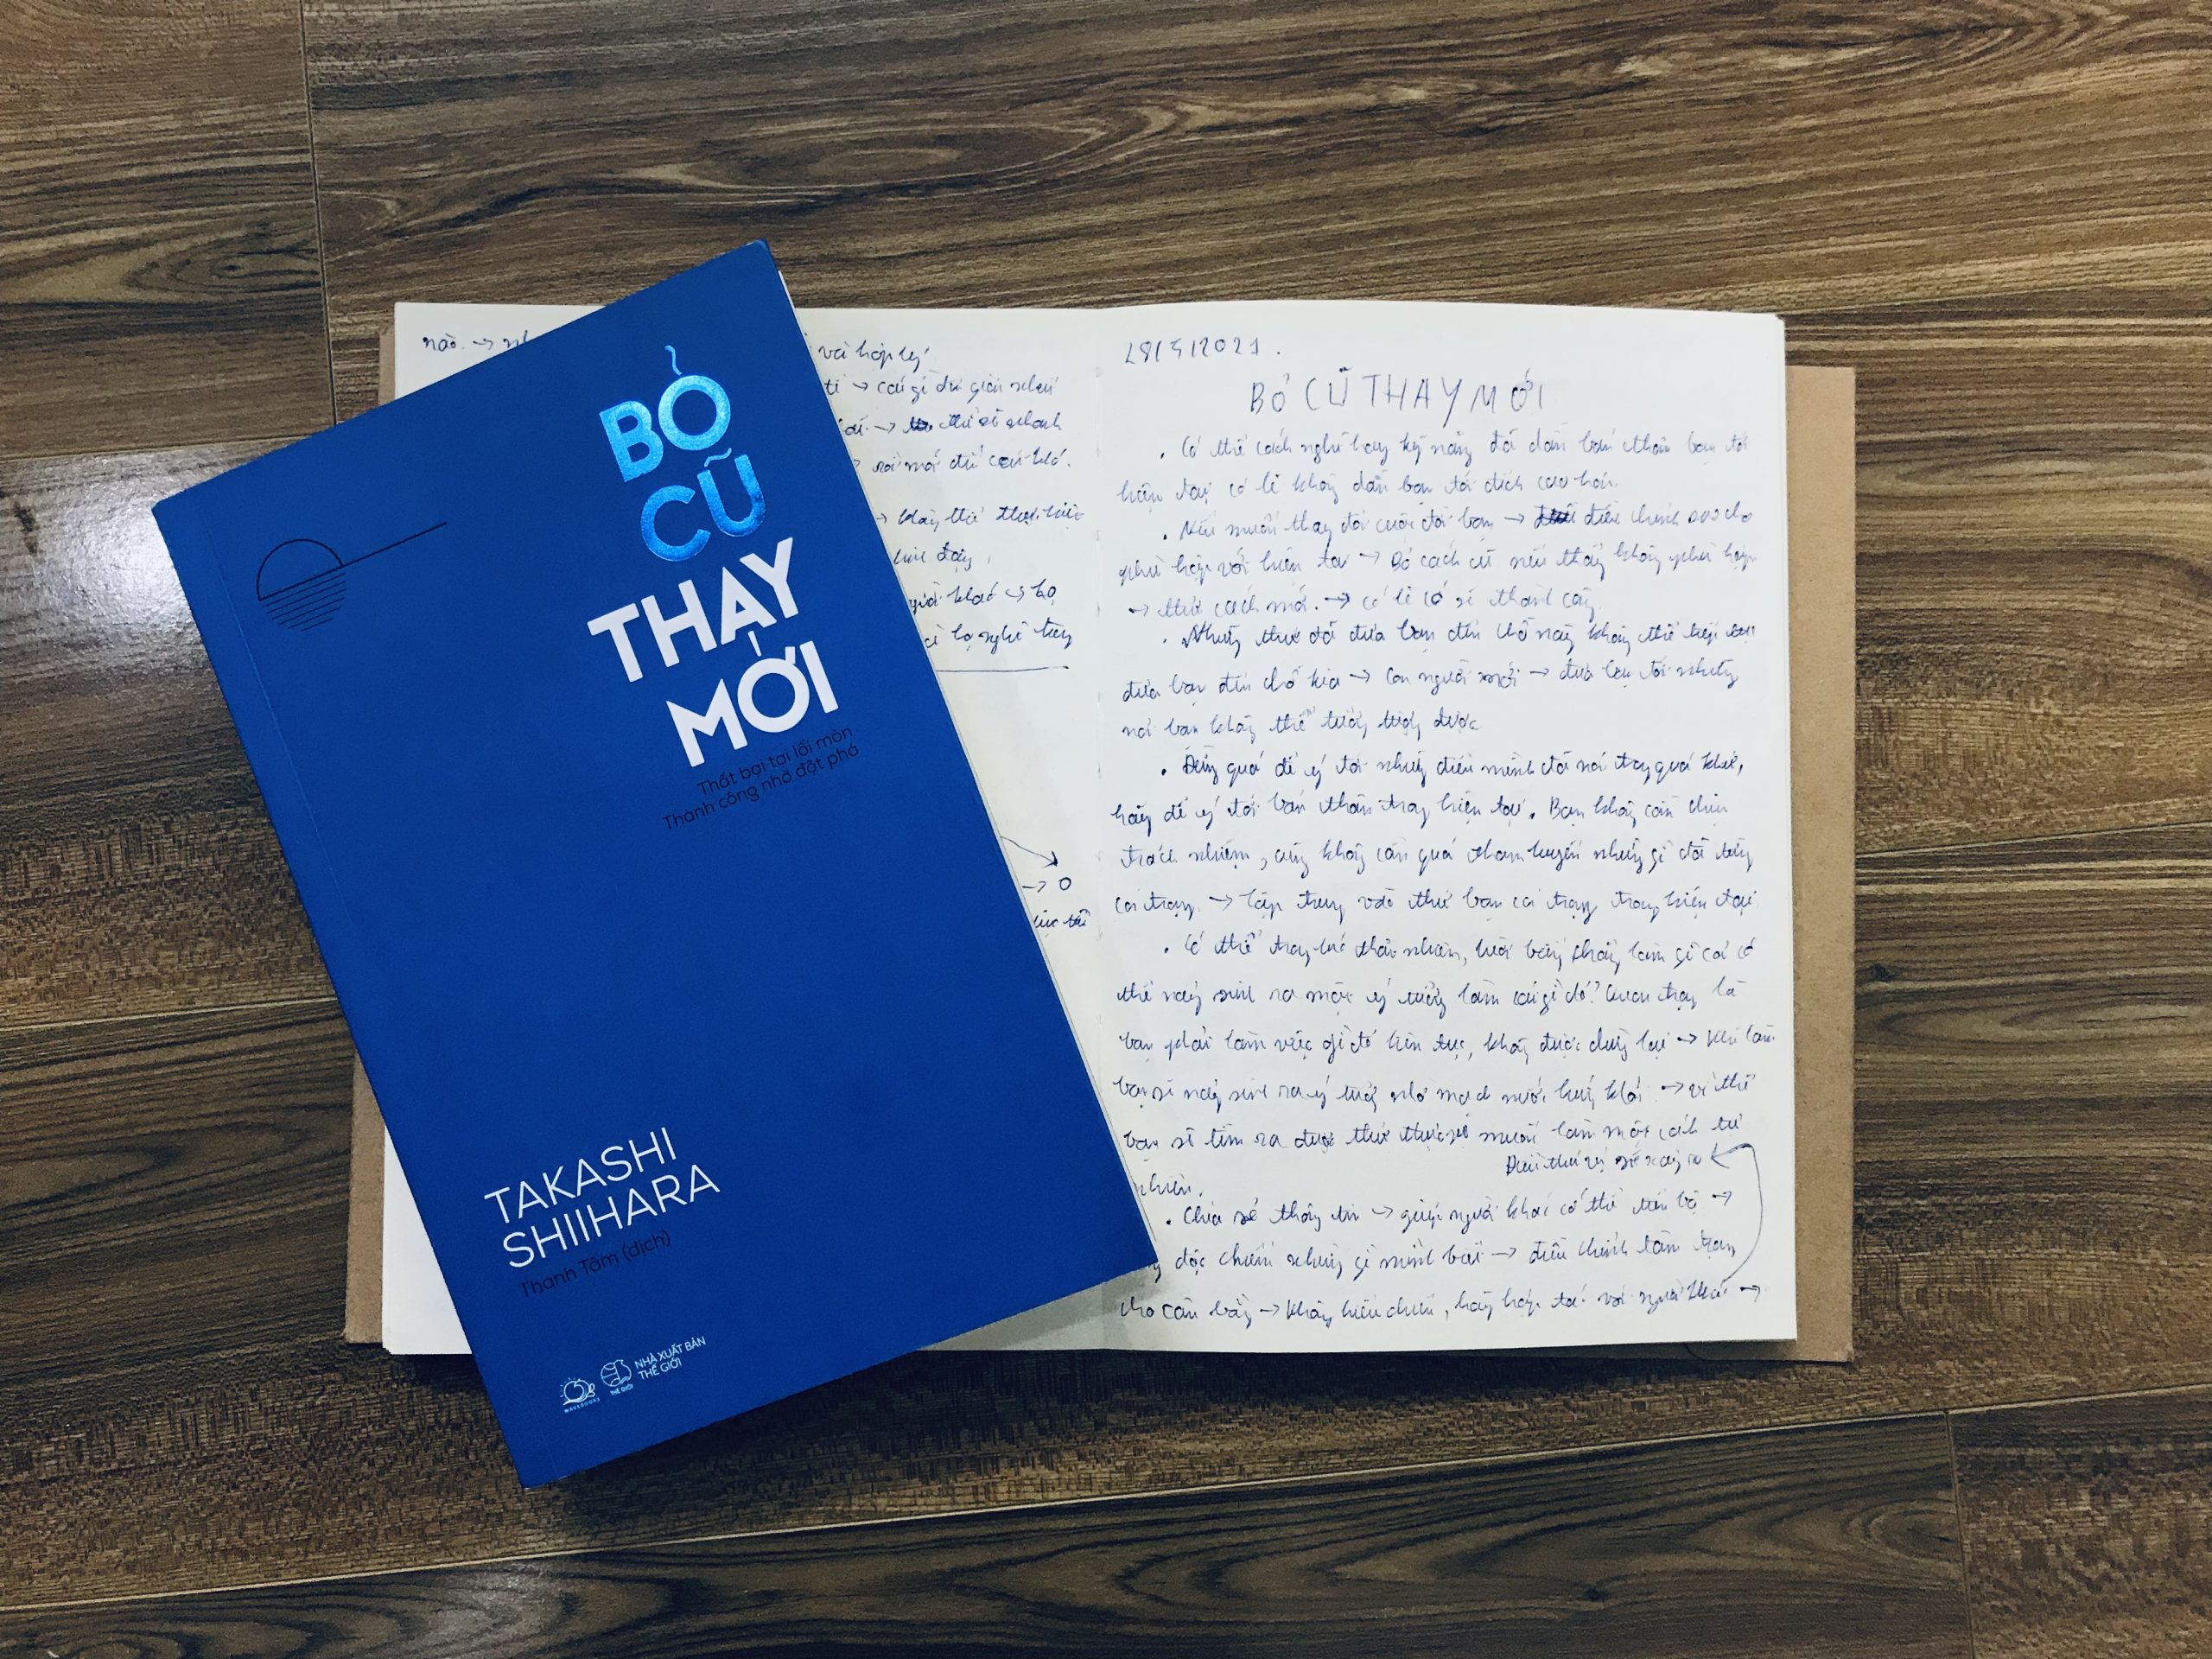 BỎ
CŨ
THAY
MỚI
Thất bại tại lối mòn
Thành công nhờ đột phá
TAKASHI
SHIIHARA
Thanh Tâm (dịch)
WAVEBOOKS
THẾ GIỚI
NHÀ XUẤT BẢN
THẾ GIỚI
nào →
và hợp lý
→ cái gì đơn giản
→ thì sẽ nhanh
rồi mới đến cái khó.
→ hãy thử thực hiện
người khác → họ
họ nghĩ rằng
→ 0
28/5/2021.
BỎ CŨ THAY MỚI
. Có thể cách nghĩ hay kỹ năng đã dẫn bản thân bạn tới
hiện tại có lẽ không dẫn bạn tới đích cao hơn.
. Nếu muốn thay đổi cuộc đời bạn → điều chỉnh sao cho
phù hợp với hiện tại → Bỏ cách cũ nếu thấy không phù hợp
→ thử cách mới. → có lẽ có sẽ thành công
. Những thứ đã đưa bạn đến chỗ này không thể tiếp tục
đưa bạn đến chỗ kia → con người mới → đưa bạn tới những
nơi bạn không thể tưởng tượng được
. Đừng quá để ý tới những điều mình đã nói trong quá khứ,
hãy để ý tới bản thân trong hiện tại. Bạn không cần chịu
trách nhiệm, cũng không cần quá tham luyến những gì đã từng
coi trọng → tập trung vào thứ bạn coi trọng trong hiện tại.
. Có thể trong lúc thản nhiên, lười biếng không làm gì cả có
thể nảy sinh ra một ý tưởng làm cái gì đó? Quan trọng là
bạn phải làm việc gì đó liên tục, không được dừng lại → khi làm
bạn sẽ nảy sinh ra ý tưởng như mạch nước → vì thế
bạn sẽ tìm ra được thứ thực sự muốn làm một cách tự
Điều thú vị sẽ xảy ra
nhiên.
. Chia sẻ thông tin → giúp người khác có thể tiến bộ →
độc chiếm những gì mình biết → điều chỉnh tâm trạng
cho cân bằng → không hiếu chiến, hãy hợp tác với người khác →